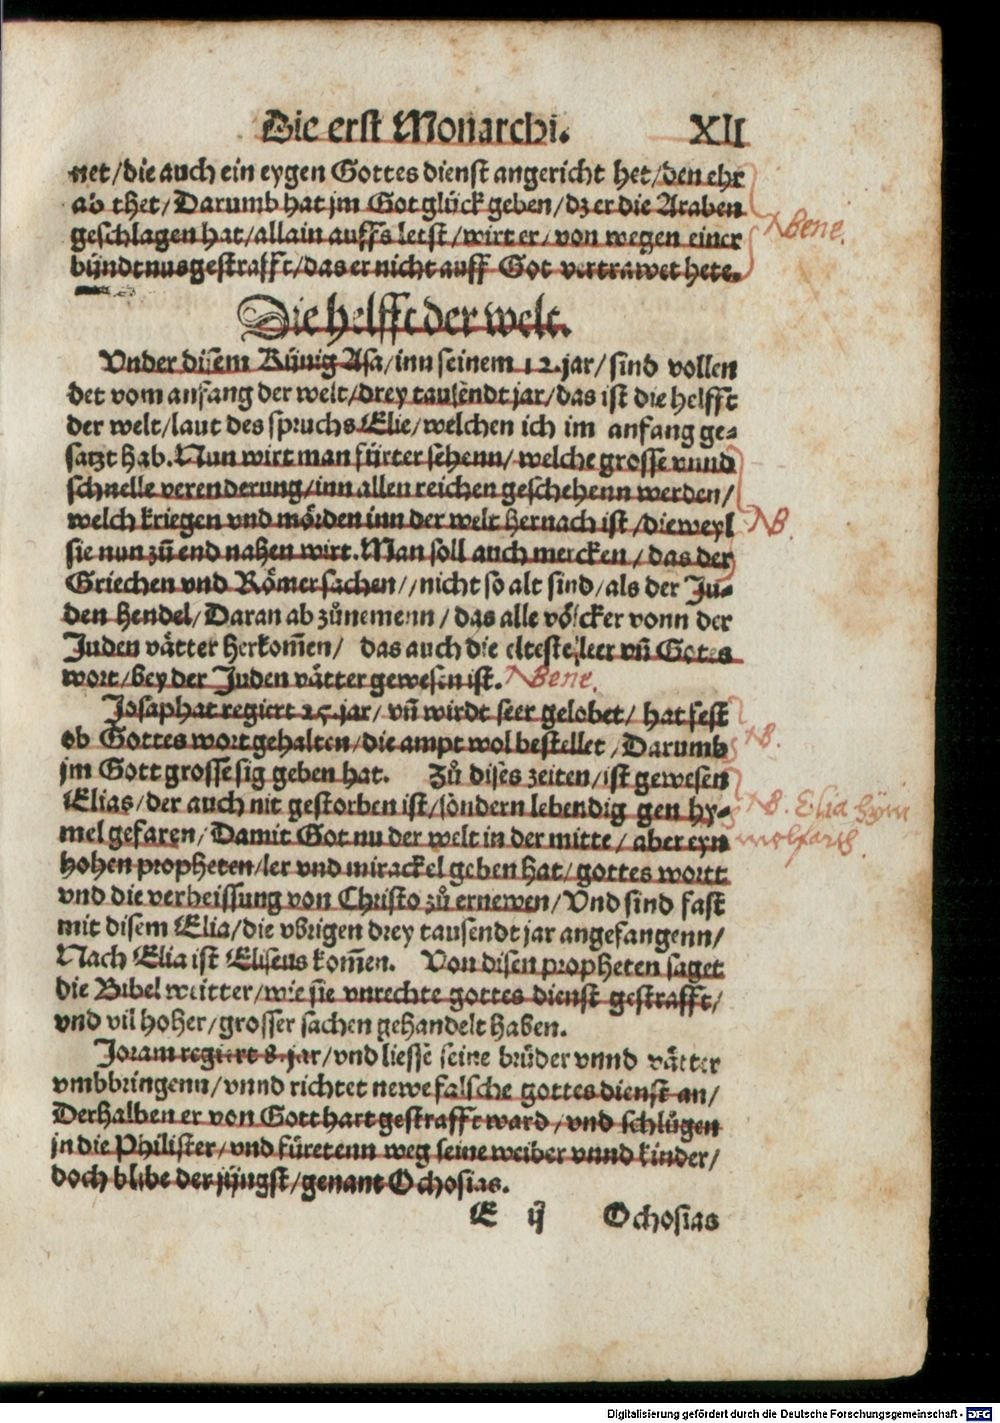 Die erst Monarchi. XII
net/die auch ein eygen Gottes dienst angericht het/den ehr
ab thet/Darumb hat jm Got glück geben/dz er die Araben
geschlagen hat/allain auffs letst/wirt er/von wegen einer
bündtnus gestrafft/das er nicht auff Got vertrawet hete.
N Bene.
Die helfft der welt.
Vnder disem Künig Asa/inn seinem 12.jar/sind vollen
det vom anfang der welt/drey tausendt jar/das ist die helfft
der welt/laut des spruchs Elie/welchen ich im anfang ge⸗
satzt hab. Nun wirt man fürter sehenn/welche grosse vnnd
schnelle verenderung/inn allen reichen geschehenn werden/
welch kriegen vnd mörden inn der welt hernach ist/dieweyl
NB.
sie nun zů end nahen wirt. Man soll auch mercken/das der
Griechen vnd Römer sachen//nicht so alt sind/als der Ju⸗
den hendel/Daran ab zůnemenn/das alle völcker vonn der
Juden vätter herkom̃en/ das auch die elteste leer vn̄ Gotes
wort/bey der Juden vätter gewesen ist. N Bene.
Josaphat regiert 25.jar/vn̄ wirdt seer gelobet/hat fest
ob Gottes wort gehalten/die ampt wol bestellet/Darumb
NB.
jm Gott grosse sig geben hat. Zů dises zeiten/ist gewesen
Elias/der auch nit gestorben ist/sondern lebendig gen hy⸗
NB. Elia
mel gefaren/Damit Got nu der welt in der mitte/aber eyn
hohen propheten/ler vnd mirackel geben hat/gottes wortt
vnd die verheissung von Christo zů ernewen/Vnd sind fast
mit disem Elia/die vbrigen drey tausendt jar angefangenn/
Nach Elia ist Eliseus kom̃en. Von disen propheten saget
die Bibel weitter/wie sie vnrechte gottes dienst gestrafft/
vnd vil hoher/grosser sachen gehandelt haben.
Joram regiert 8.jar/vnd liesse seine brüder vnnd vätter
vmbbringenn/vnnd richtet newe falsche gottes dienst an/
Derhalben er von Gott hart gestrafft ward/vnd schlůgen
jn die Philister/vnd füretenn weg seine weiber vnnd kinder/
doch blibe der jüngst/genant Ochosias.
E ij Ochosias
Digitalisierung gefördert durch die Deutsche Forschungsgemeinschaft - DFG